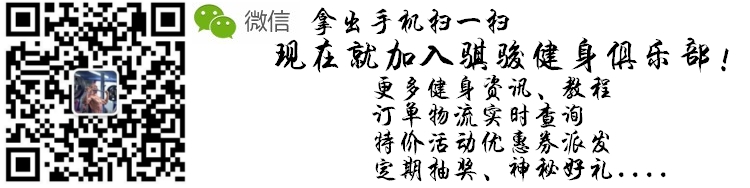 微信
拿出手机扫一扫
现在就加入骐骏健身俱乐部!
更多健身资讯、教程
订单物流实时查询
特价活动优惠券派发
定期抽奖、神秘好礼....